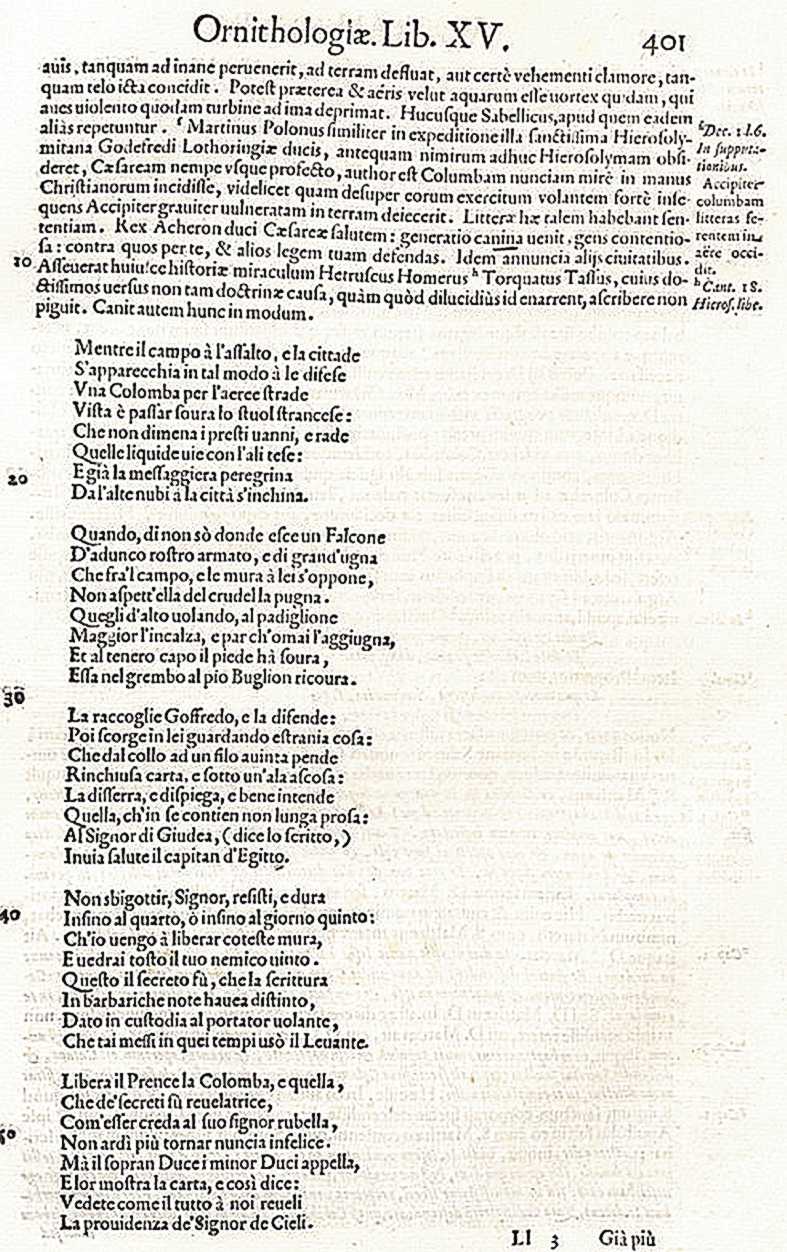 Ornithologiæ. Lib. XV. 401
auis, tanquam ad inane peruenerit, ad terram defluat, aut certè vehementi clamore, tan-
quam telo icta concidit. Potest præterea & aëris velut aquarum esse uortex quidam, qui
aues uiolento quodam turbine ad ima deprimat. Hucusque Sabellicus, apud quem eadem
aliàs repetuntur. ᶠ Martinus Polonus similiter in expeditione illa sanctissima Hierosoly-
mitana Godefredi Lothoringiæ ducis, antequam nimirum adhuc Hierosolymam obsi-
deret, Cæsaream nempe vsque profecto, author est Columbam nunciam mirè in manus
Christianorum incidisse, videlicet quam desuper eorum exercitum volantem fortè inse-
quens Accipiter grauiter uulneratam in terram deiecerit. Litteræ hæ talem habebant sen-
tentiam. Rex Acheron duci Cæsareæ salutem: generatio canina uenit, gens contentio-
sa: contra quos per te, & alios legem tuam defendas. Idem annuncia alijs ciuitatibus.
10 Asseuerat huiusce historiæ miraculum Hetruscus Homerus ʰ Torquatus Tassus, cuius do-
ctissimos uersus non tam doctrinæ causa, quàm quòd dilucidiùs id enarrent, ascribere non
piguit. Canit autem hunc in modum.
ᶠ Dec. 1. l. 6.
In supputa-
tionibus.
Accipiter
columbam
litteras fe-
rentem in
aëre occi-
dit.
ʰ Cant. 18.
Hieros. libe.
Mentre il campo à l'assalto, e la cittade
S'apparecchia in tal modo à le difese
Vna Colomba per l'aeree strade
Vista è passar soura lo stuol francese:
Che non dimena i presti uanni, e rade
Quelle liquide uie con l'ali tese:
20 E già la messaggiera peregrina
Da l'alte nubi à la città s'inchina.
Quando, di non sò donde esce un Falcone
D'adunco rostro armato, e di grand'ugna
Che fra'l campo, e le mura à lei s'oppone,
Non aspett'ella del crudel la pugna.
Quegli d'alto uolando, al padiglione
Maggior l'incalza, e par ch'omai l'aggiugna,
Et al tenero capo il piede hà soura,
Essa nel grembo al pio Buglion ricoura.
30
La raccoglie Goffredo, e la difende:
Poi scorge in lei guardando estrania cosa:
Che dal collo ad un filo auinta pende
Rinchiusa carta, e sotto un'ala ascosa:
La disserra, e dispiega, e bene intende
Quella, ch'in se contien non lunga prosa:
Al Signor di Giudea, (dice lo scritto,)
Inuia salute il capitan d'Egitto.
Non sbigottir, Signor, resisti, e dura
40 Insino al quarto, ò insino al giorno quinto:
Ch'io uengo à liberar coteste mura,
E uedrai tosto il tuo nemico uinto.
Questo il secreto fù, che la scrittura
In barbariche note hauea distinto,
Dato in custodia al portator uolante,
Che tai messi in quei tempi usò il Leuante.
Libera il Prence la Colomba, e quella,
Che de' secreti fù reuelatrice,
Com'esser creda al suo signor rubella,
50 Non ardì più tornar nuncia infelice.
Mà il sopran Duce i minor Duci appella,
E lor mostra la carta, e così dice:
Vedete come il tutto à noi reueli
La prouidenza de' Signor de Cieli.
Ll 3 Già più